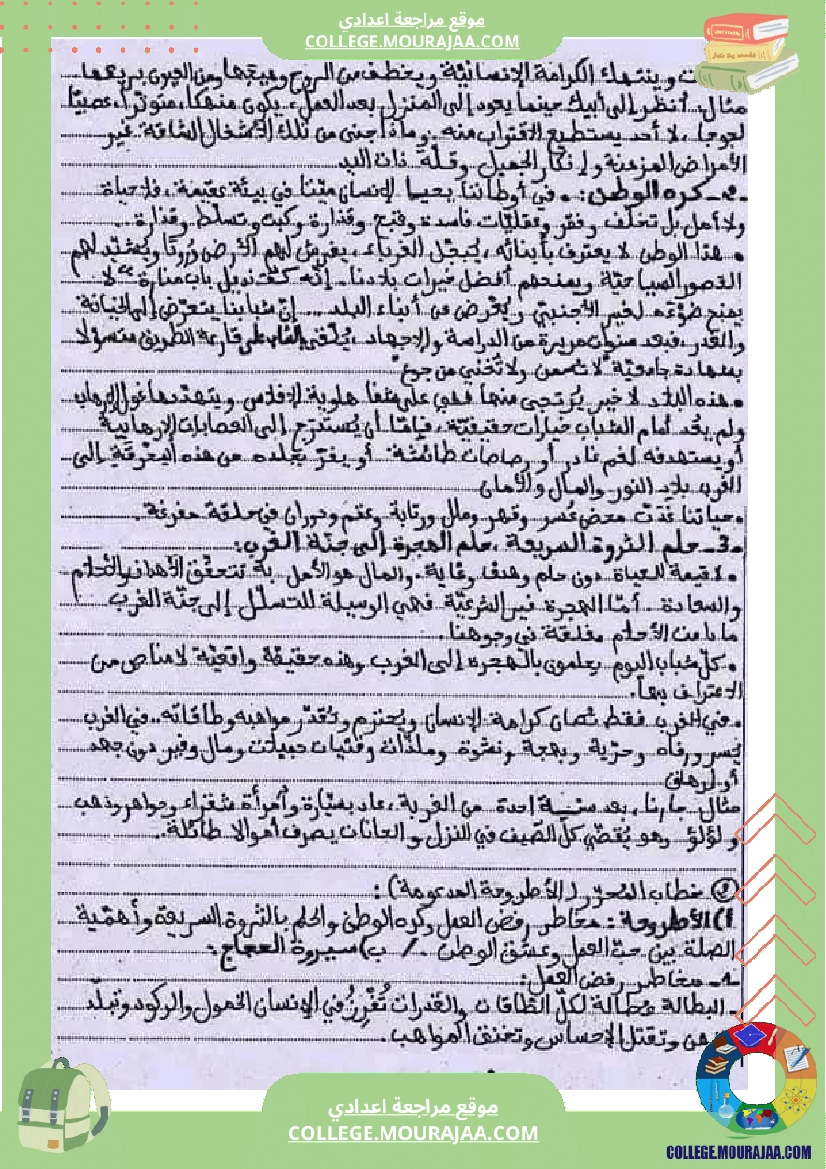 موقع مراجعة اعدادي
COLLEGE.MOURAJAA.COM
وينتهك الكرامة الإنسانيّة ويخطف من الروح وهيجها ومن العيون بريقها
مثال: أنظر إلى أبيك حينما يعود إلى المنزل بعد العمل، يكون منهكا، متوتّرا، عصبيّا
لجوجا، لا أحد يستطيع الاقتراب منه. وماذا جنى من تلك الأشغال الشاقة غير
الأمراض المزمنة وإنكار الجميل وقلّة ذات اليد
2- كره الوطن: في أوطاننا يحيا الإنسان ميّتا في بيئة عقيمة، فلا حياة
ولا أمل بل تخلّف وفقر وعقليّات فاسدة وقبح وقذارة وكبت وتسلّط وقذارة..
• هذا الوطن لا يعترف بأبنائه، يُبجّل الغرباء، يفرش لهم الأرض ورودًا ويُشيّد لهم
القصور السياحيّة ويمنحهم أفضل خيرات بلادنا. إنّه كقنديل باب منارة "لا
يمنح ضوْءه لغير الأجنبيّ ويُعْرض عن أبناء البلد .... إنّ شبابنا يتعرّض إلى الخيانة
والغدر، فبعد سنوات مريرة من الدراسة والاجتهاد، يُلْقى على قارعة الطريق متسوّلا
بشهادة جامعيّة "لا تسمن ولا تُغني من جوع"
• هذه البلاد لا خير يُرتجى منها فهي على شفا هاوية الإفلاس ويتهدّدها غول الإرهاب
ولم يعُد أمام الشباب خيارات حقيقيّة، فإمّا أن يُستدرج إلى العصابات الإرهابيّة
أو يستهدفه لغم غادر أو رصاصات طائشة أو يفرّ بجلده من هذه المِحْرقة إلى
الغرب بلاد النور والمال والأمان
• حياتنا غدت محض عُسر وقهر وملل ورتابة وعقم ودوران في حلقة مفرغة.
3- حلم الثروة السريعة، حلم الهجرة إلى جنّة الغرب:
• لا قيمة للحياة دون حلم وهدف وغاية. والمال هو الأمل به تتحقّق الأهداف والأحلام
والسعادة. أمّا الهجرة غير الشرعيّة فهي الوسيلة للتسلّل إلى جنّة الغرب
ما دامت الأحلام مغلقة في وجوهنا.
• كلّ شباب اليوم يحلمون بالهجرة إلى الغرب وهذه حقيقة واقعيّة لا مناص من
الاعتراف بها.
• في الغرب فقط تُصان كرامة الإنسان ويُحترم وتُقدّر مواهبه وطاقاته. في الغرب
يُسر ورفاه وحرّية وبهجة ونشوة وملذّات وفتيات جميلات ومال وفير دون جهد
أو إرهاق
مثال: جارنا، بعد سنة واحدة من الغربة، عاد بسيّارة وامرأة شقراء وجواهر وذهب
ولؤلؤ وهو يُقضّي كلّ الصّيف في النزل والحانات يصرف أموالا طائلة.
② خطاب المُحرّر (الأطروحة المدعومة):
أ) الأطروحة: مخاطر رفض العمل وكره الوطن والحلم بالثروة السريعة وأهمّية
الصلة بين حبّ العمل وعشق الوطن. / ب) سيرورة الحجاج:
1- مخاطر رفض العمل:
- البطالة عطالة لكلّ الطاقات والقدرات تُغْرِزُ في الإنسان الخمول والركود وتبلّد
وتقتل الإحساس وتخنق المواهب.
موقع مراجعة اعدادي
COLLEGE.MOURAJAA.COM
COLLEGE.MOURAJAA.COM